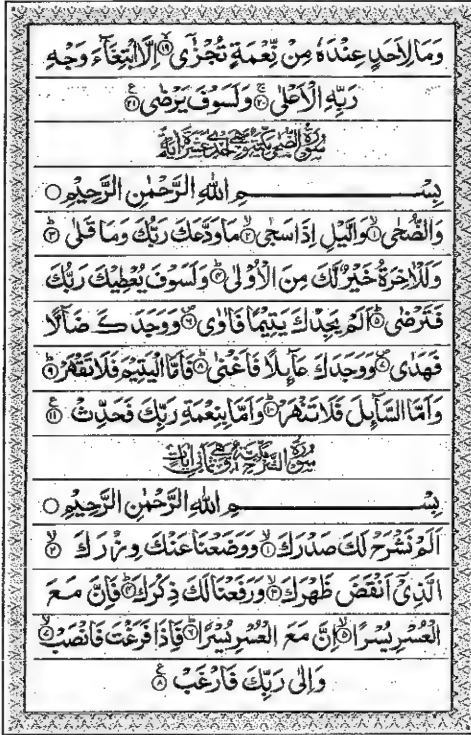 وَمَا لِاَحَدٍ عِنْدَهٗ مِنْ نِّعْمَةٍ تُجْزٰۤى ۙ۝۱۹ اِلَّا ابْتِغَآءَ وَجْهِ
رَبِّهِ الْاَعْلٰى ۚ۝۲۰ وَلَسَوْفَ يَرْضٰى ۝۲۱
سُوْرَةُ الضُّحٰى مَكِّيَّةٌ وَّهِيَ اِحْدٰى عَشَرَةَ اٰيَةً
بِسْــــــــــــــــــمِ اللّٰهِ الرَّحْمٰنِ الرَّحِيْمِ ۝
وَالضُّحٰى ۙ۝۱ وَالَّيْلِ اِذَا سَجٰى ۙ۝۲ مَا وَدَّعَكَ رَبُّكَ وَمَا قَلٰى ؕ۝۳
وَلَلْاٰخِرَةُ خَيْرٌ لَّكَ مِنَ الْاُوْلٰى ؕ۝۴ وَلَسَوْفَ يُعْطِيْكَ رَبُّكَ
فَتَرْضٰى ؕ۝۵ اَلَمْ يَجِدْكَ يَتِيْمًا فَاٰوٰى ۪۝۶ وَوَجَدَكَ ضَآلًّا
فَهَدٰى ۪۝۷ وَوَجَدَكَ عَآئِلًا فَاَغْنٰى ؕ۝۸ فَاَمَّا الْيَتِيْمَ فَلَا تَقْهَرْ ؕ۝۹
وَاَمَّا السَّآئِلَ فَلَا تَنْهَرْ ؕ۝۱۰ وَاَمَّا بِنِعْمَةِ رَبِّكَ فَحَدِّثْ ۝۱۱
سُوْرَةُ الشَّرْحِ مَكِّيَّةٌ وَّهِيَ ثَمَانِيْ اٰيَاتٍ
بِسْــــــــــــــــــمِ اللّٰهِ الرَّحْمٰنِ الرَّحِيْمِ ۝
اَلَمْ نَشْرَحْ لَكَ صَدْرَكَ ۙ۝۱ وَوَضَعْنَا عَنْكَ وِزْرَكَ ۙ۝۲
الَّذِيْۤ اَنْقَضَ ظَهْرَكَ ۙ۝۳ وَرَفَعْنَا لَكَ ذِكْرَكَ ؕ۝۴ فَاِنَّ مَعَ
الْعُسْرِ يُسْرًا ۙ۝۵ اِنَّ مَعَ الْعُسْرِ يُسْرًا ؕ۝۶ فَاِذَا فَرَغْتَ فَانْصَبْ ۙ۝۷
وَاِلٰى رَبِّكَ فَارْغَبْ ۝۸